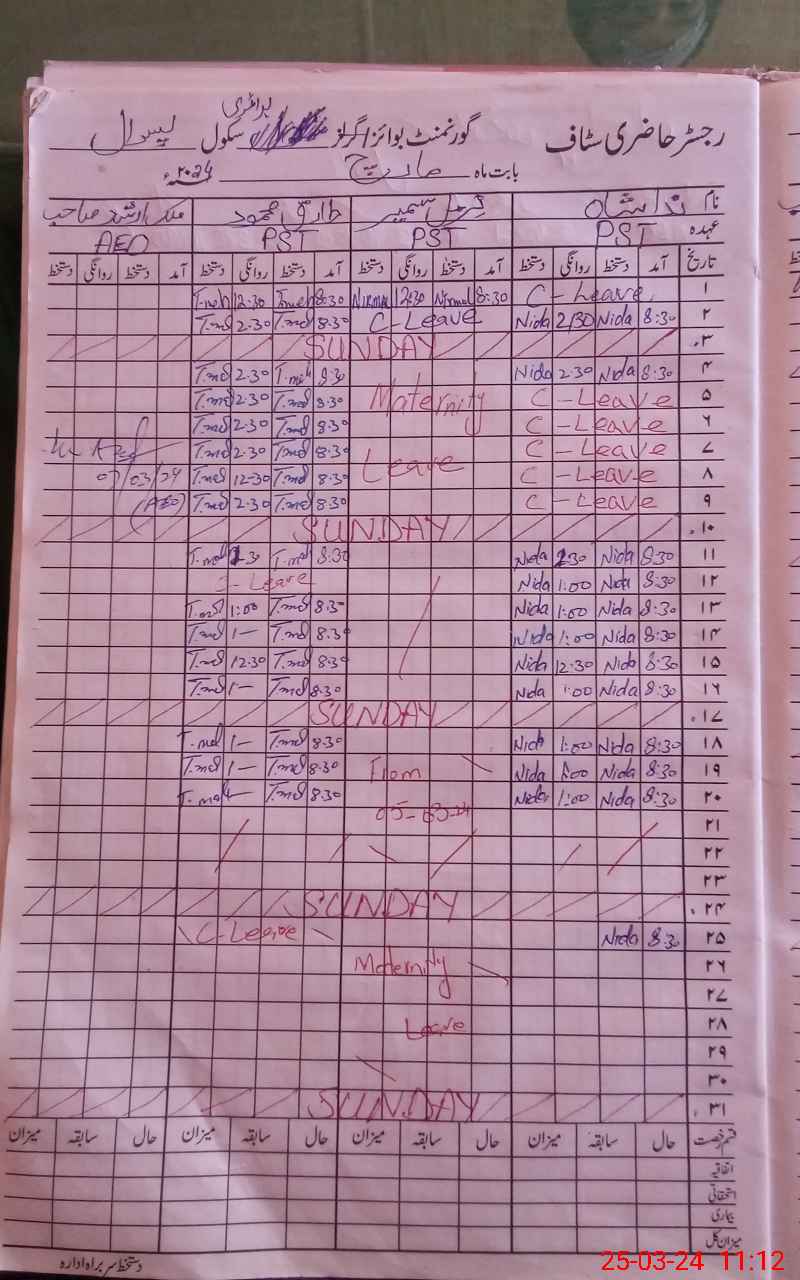 رجسٹر حاضری سٹاف گورنمنٹ بوائز/گرلز پرائمری سکول
بابت ماہ مارچ ۲۰۲4ء
نام ندا شاہ طارق محمود ملک ارشد صاحب
عہدہ PST PST PST AEO
تاریخ آمد دستخط روانگی دستخط آمد دستخط روانگی دستخط آمد دستخط روانگی دستخط آمد دستخط روانگی دستخط
۱ C-Leave 8:30 Nirmal 12:30 Nirmal 8:30 T.meh 12.30 T.meh
۲ 8:30 Nida 2:30 Nida C-Leave 8.30 T.md 2.30 T.md
۳ SUNDAY
۴ 8:30 Nida 2.30 Nida 8.30 T.md 2.30 T.md
۵ C-Leave Maternity 8.30 T.md 2.30 T.md
۶ C-Leave 8.30 T.md 2.30 T.md
۷ C-Leave Leave 8.30 T.md 2.30 T.md
۸ C-Leave 8.30 T.md 12-30 T.md 07/03/24
۹ C-Leave 8.30 T.md 2.30 T.md (AEO)
۱۰ SUNDAY
۱۱ 8:30 Nida 2:30 Nida 8.30 T.md T.md
۱۲ 8:30 Nida 1:00 Nida C-Leave
۱۳ 8:30 Nida 1:00 Nida 8.30 T.md 1:00 T.md
۱۴ 8:30 Nida 1:00 Nida 8.30 T.md 1— T.md
۱۵ 8:30 Nida 12:30 Nida 8.30 T.md 12.30 T.md
۱۶ 8:30 Nida 1:00 Nida 8.30 T.md 1— T.md
۱۷ SUNDAY
۱۸ 8:30 Nida 1:00 Nida 8.30 T.md 1— T.md
۱۹ 8:30 Nida 1:00 Nida From 8.30 T.md 1— T.md
۲۰ 8:30 Nida 1:00 Nida 05-03-24 8.30 T.md 1— T.md
۲۱
۲۲
۲۳
۲۴ SUNDAY
۲۵ 8:30 Nida C-Leave
۲۶ Maternity
۲۷
۲۸ Leave
۲۹
۳۰
۳۱ SUNDAY
قسم رخصت حال سابقہ میزان حال سابقہ میزان حال سابقہ میزان حال سابقہ میزان
اتفاقیہ
استحقاقی
بیماری
میزان کل
دستخط سربراہ ادارہ
25-03-24 11:12